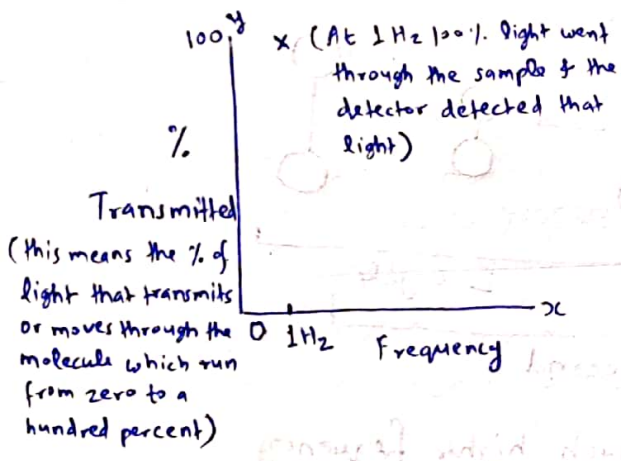 100 y
x (At 1Hz 100% light went
through the sample & the
detector detected that
light)
%
Transmitted
(this means the % of
light that transmits
or moves through the
molecule which run
from zero to a
hundred percent)
0 1Hz
x
Frequency